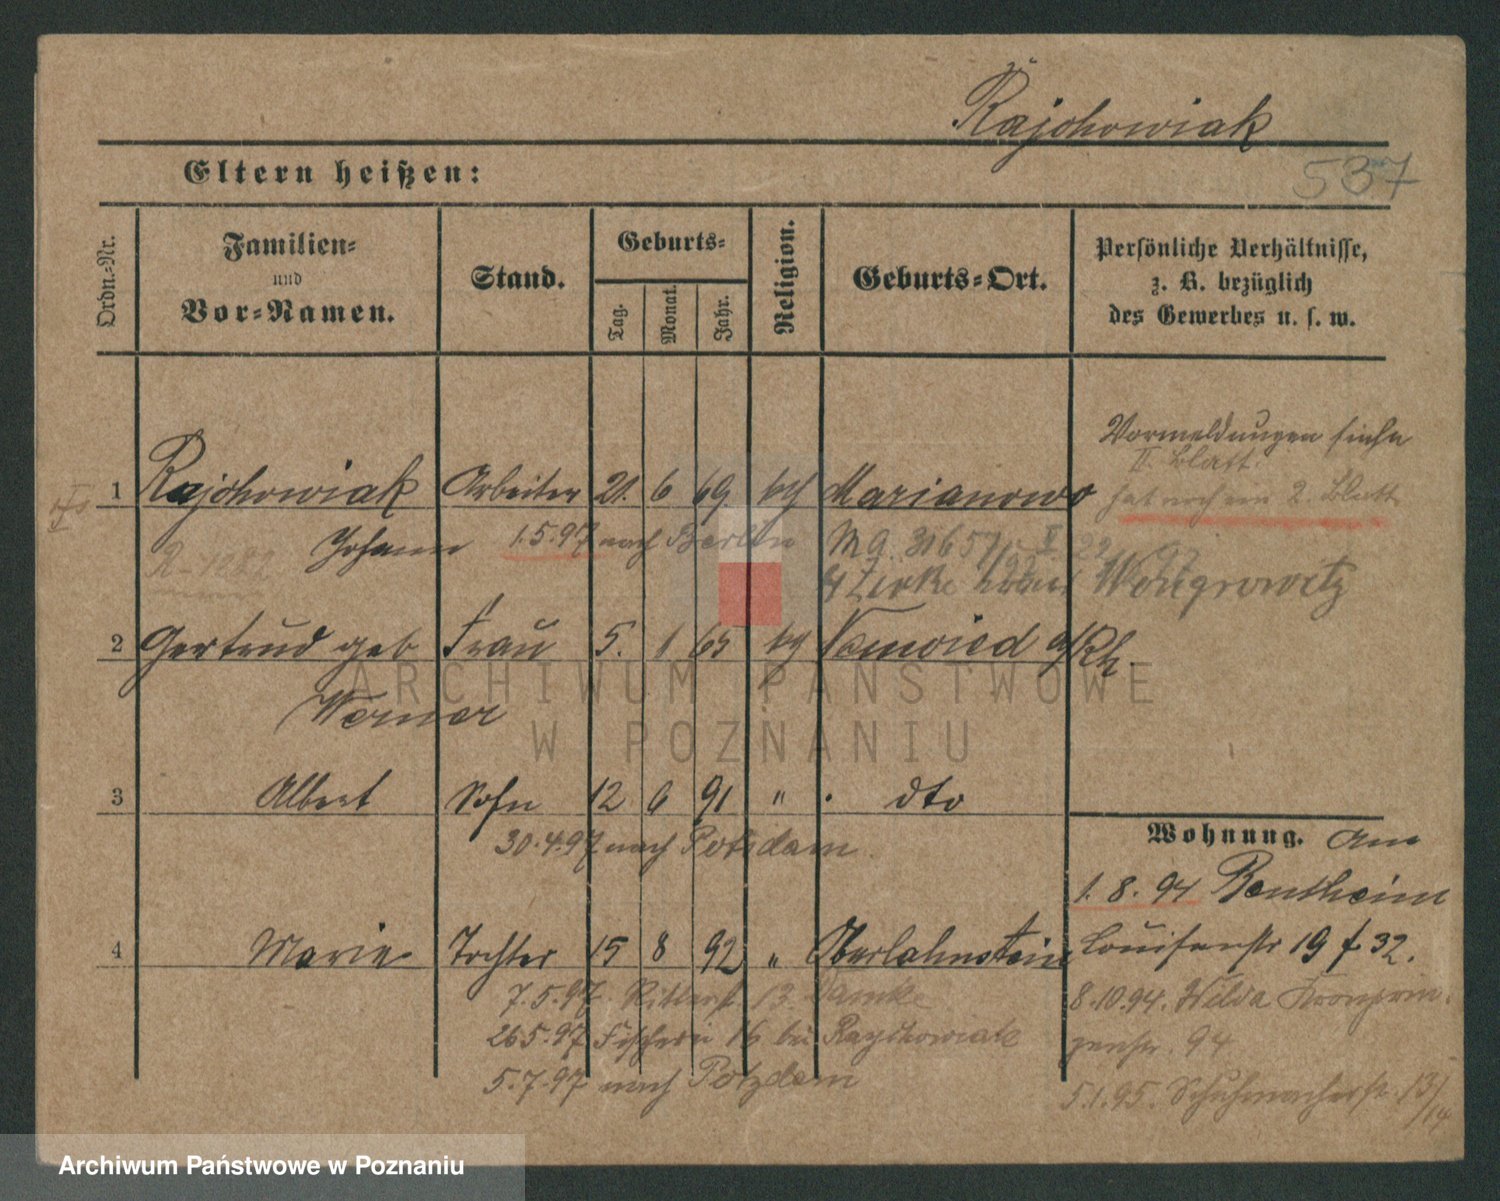 Rajchowiak
537
Eltern heißen:
Ordn.-Nr.
Familien-
und
Vor-Namen.
Stand.
Geburts-
Tag.
Monat.
Jahr.
Religion.
Geburts-Ort.
Persönliche Verhältnisse,
z. B. bezüglich
des Gewerbes u. s. w.
Vormeldungen siehe
II. Blatt.
1 Rajchowiak Arbeiter 21. 6 69 kth Marianowo
hat noch ein 2. Blatt
Johann 1.5.97 nach Berlin
Wongrowitz
2 Gertrud geb Frau 5. 1 65 kth Neuwied a/Rh.
Werner
3 Albert Sohn 12 6 91 " dto
30.4.97 nach Potsdam
Wohnung. Am
1. 8. 94 Bentheim
4 Marie Tochter 15 8 92 " Oberlahnstein
Louisenstr 19 f 32.
7.5.97. Ritterst. 13.
8.10.94. Wilda Kronprin-
26.5.97 Fischerei 16 bei Raychowiak
zenstr. 94
5.7.97 nach Potzdam
5.1.95. Schuhmacherstr. 13/
14
ARCHIWUM PAŃSTWOWE
W POZNANIU
Archiwum Państwowe w Poznaniu